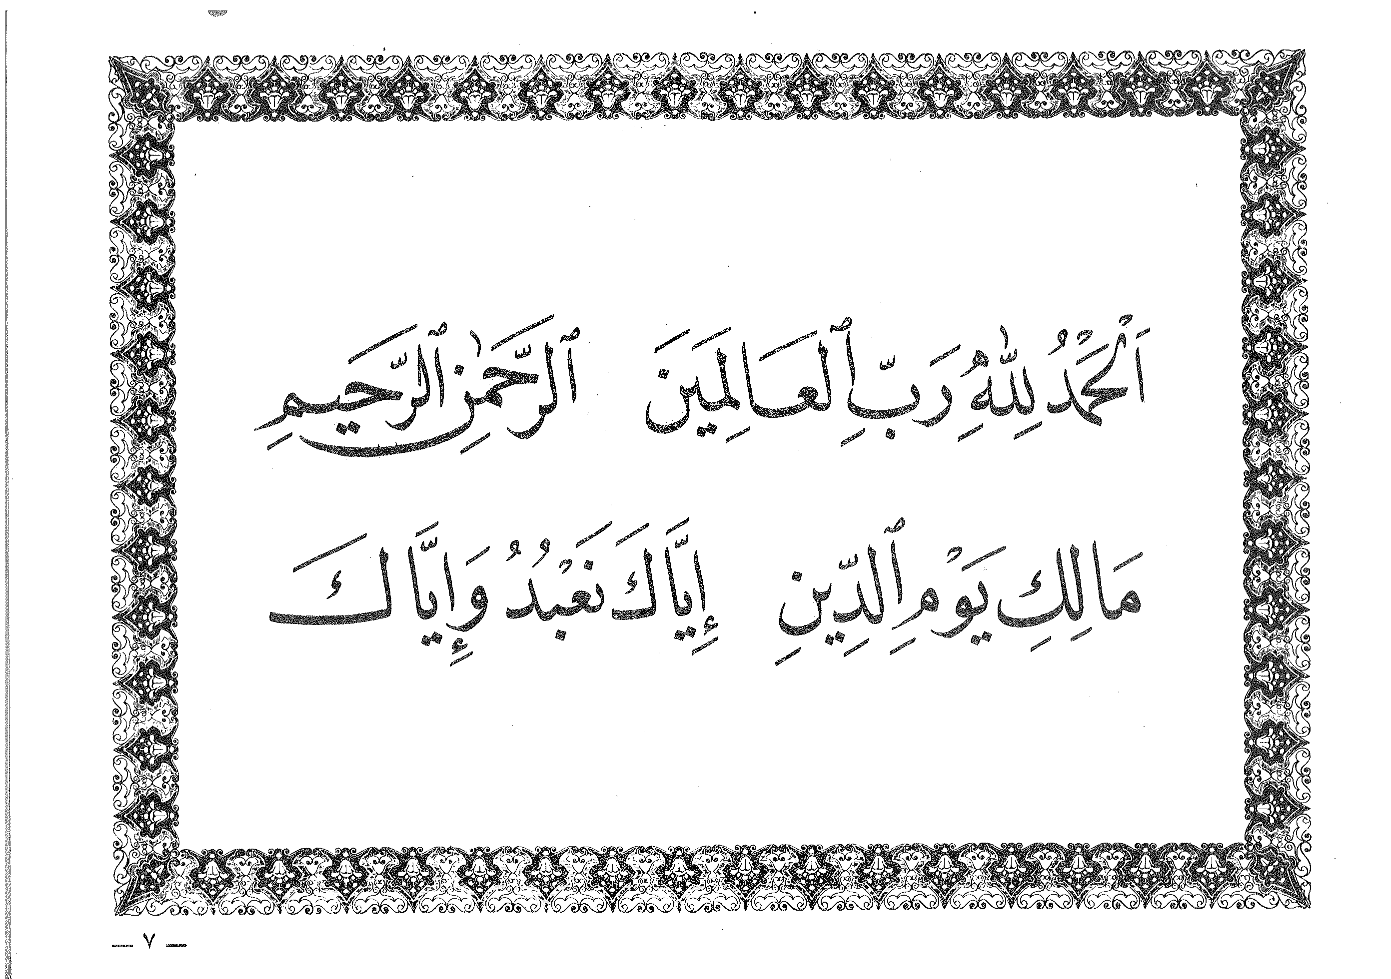 اَلْحَمْدُ لِلّٰهِ رَبِّ ٱلْعَالَمِينَ ٱلرَّحْمٰنِ ٱلرَّحِيمِ
مَالِكِ يَوْمِ ٱلدِّينِ إِيَّاكَ نَعْبُدُ وَإِيَّاكَ
٧